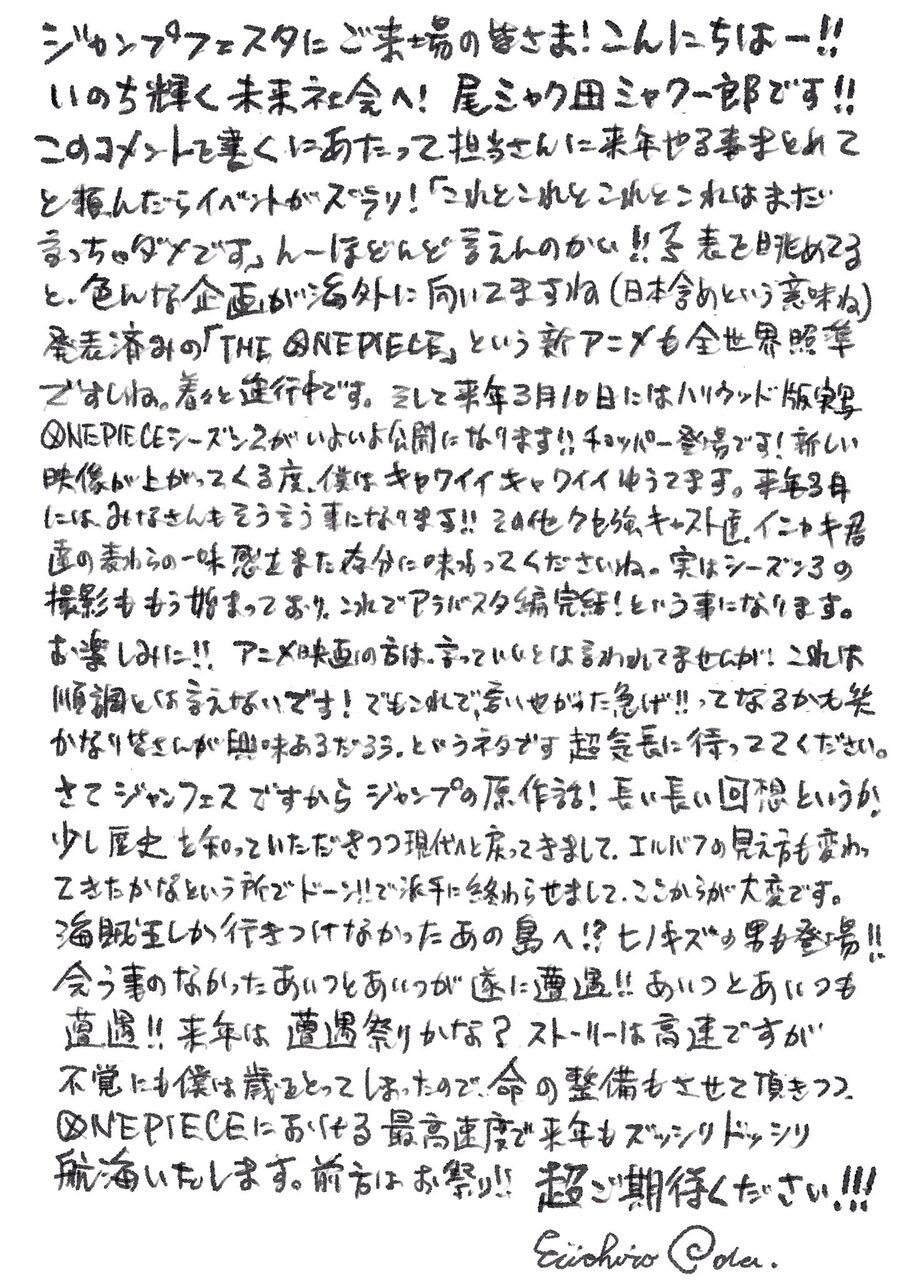 ジャンプフェスタにご来場の皆さま!こんにちはー!!
いのち輝く未来社会へ! 尾ミャク田ミャク一郎です!!
このコメントを書くにあたって担当さんに来年やる事まとめて
と頼んだらイベントがズラリ!「これとこれとこれとこれはまだ
言っちゃダメです」んーほどんど言えんのかい!!予表を眺めてる
と、色んな企画が海外に向いてますね(日本含めという意味ね)
発表済みの「THE ONEPIECE」という新アニメも全世界照準
ですしね。着々と進行中です。そして来年3月10日にはハリウッド版実写
ONEPIECEシーズン2がいよいよ公開になります!!チョッパー登場です!新しい
映像が上がってくる度、僕はキャワイイキャワイイゆうてます。来年3月
には、みなさんもそう言う事になります!!その他クセ強キャスト達、イニャキ君
達の麦わらの一味感をまた存分に味わってくださいね。実はシーズン3の
撮影ももう始まっており、これでアラバスタ編完結!という事になります。
お楽しみに!! アニメ映画の方は、言っていいとは言われてませんが!これは
順調とは言えないです!でもこれで、言いやがった急げ!!ってなるかも笑
かなり皆さんが興味あるだろう、というネタです 超気長に待っててください。
さてジャンフェスですからジャンプの原作話!長い長い回想というか、
少し歴史を知っていただきつつ現代へと戻ってきまして、エルバフの見え方も変わっ
てきたかなという所でドーン!!で派手に終わらせまして、ここからが大変です。
海賊王しか行きつけなかったあの島へ!?ヒノキズの男も登場!!
会う事のなかったあいつとあいつが遂に遭遇!!あいつとあいつも
遭遇!!来年は遭遇祭りかな?ストーリーは高速ですが
不覚にも僕は歳をとってしまったので、命の整備もさせて頂きつつ、
ONEPIECEにおける最高速度で来年もズッシリドッシリ
航海いたします。前方はお祭り!! 超ご期待ください!!!
Eiichiro Oda.